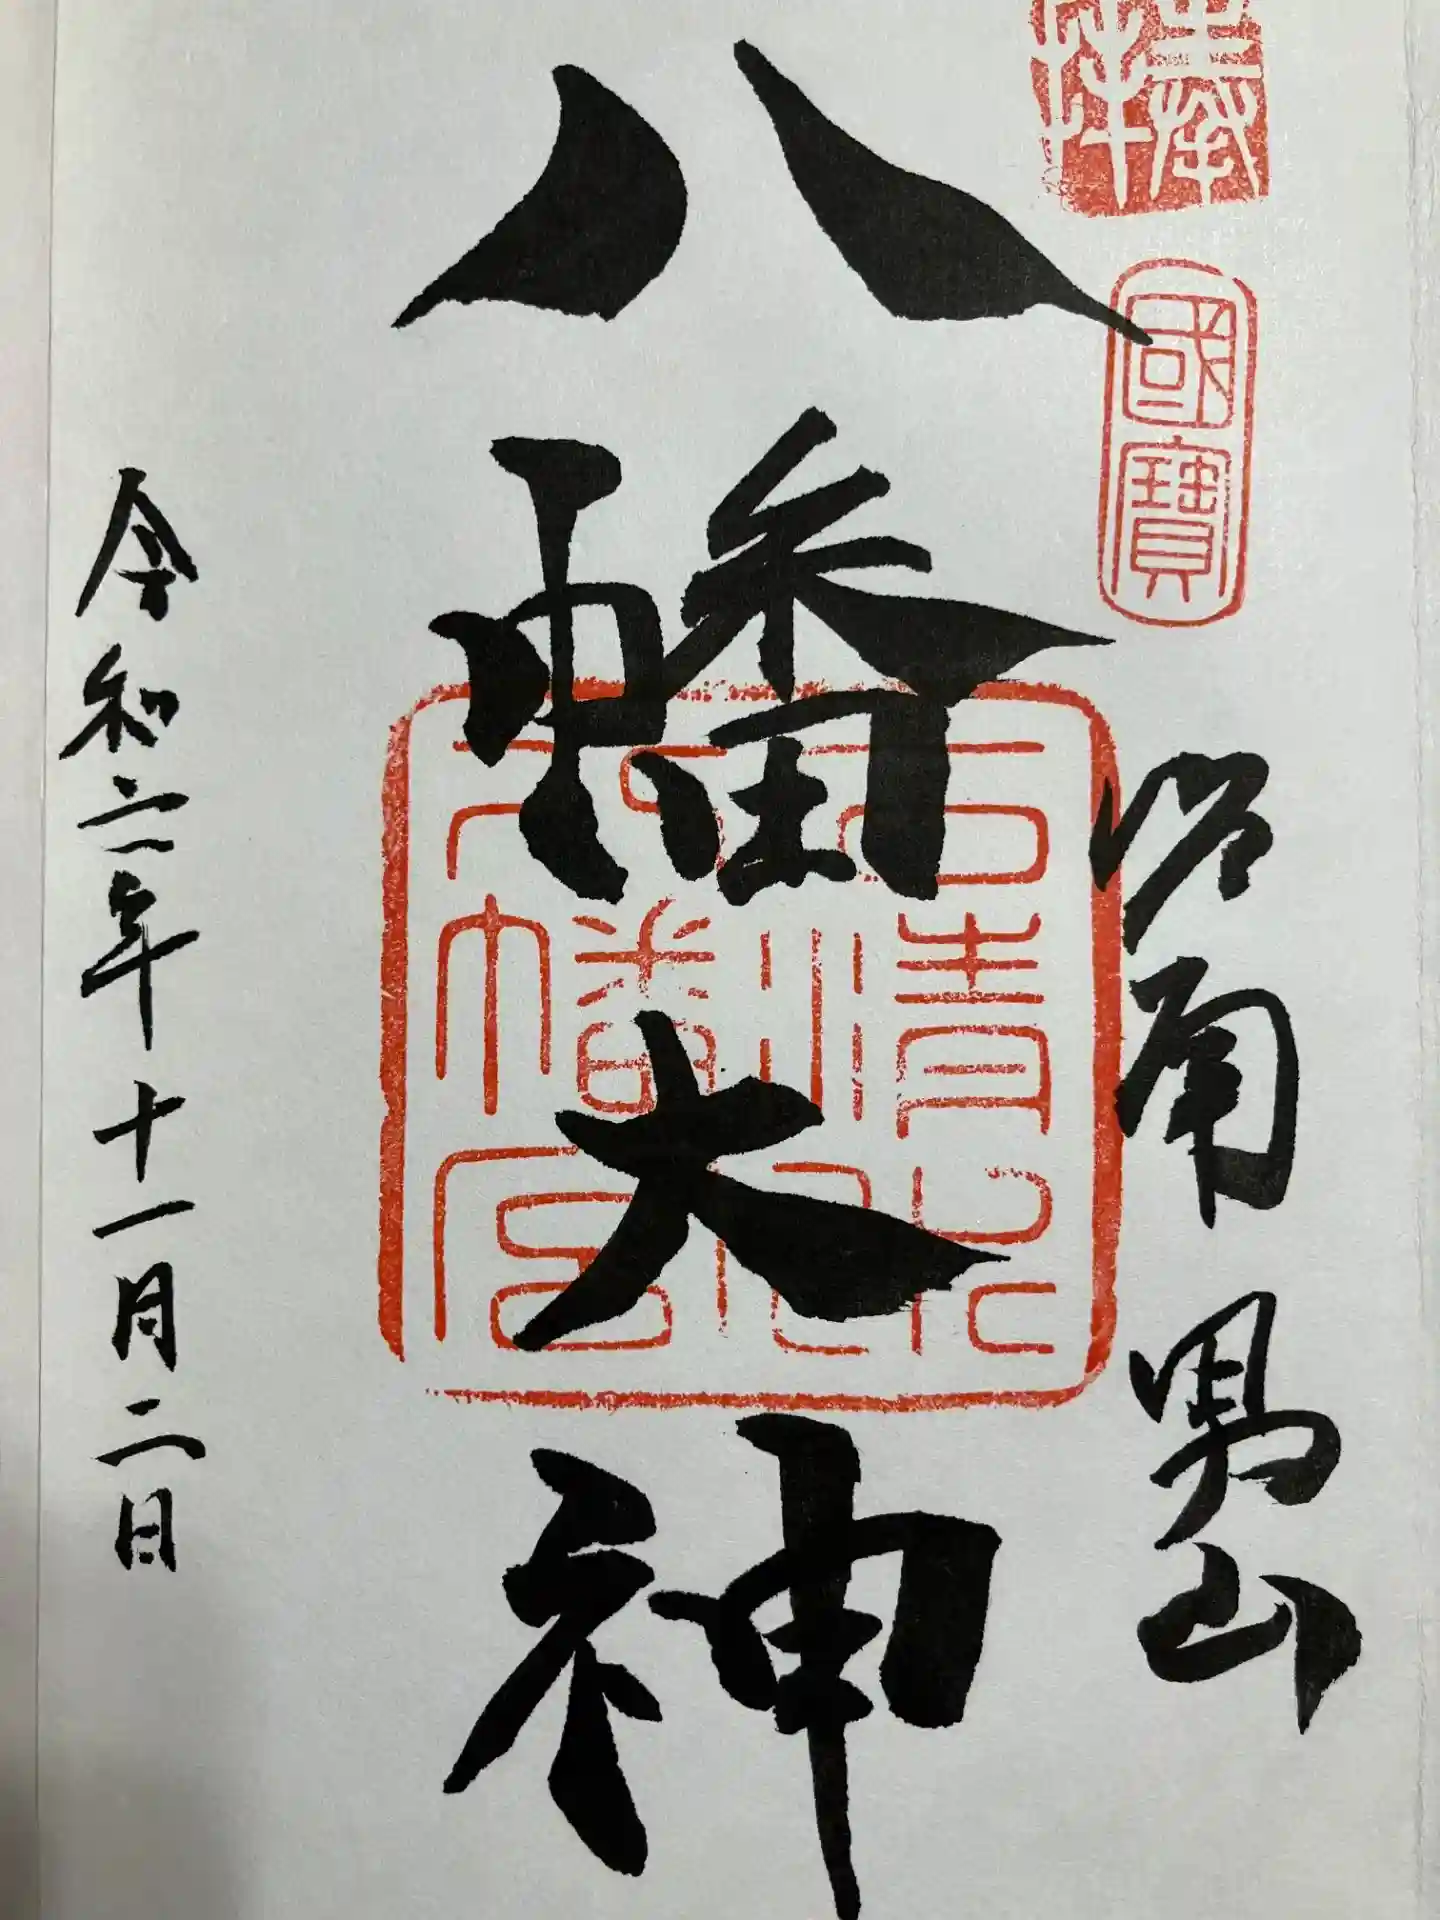 奉拜
國寶
洛南 男山
八幡大神
石清水
八幡宮
令和三年十一月二日